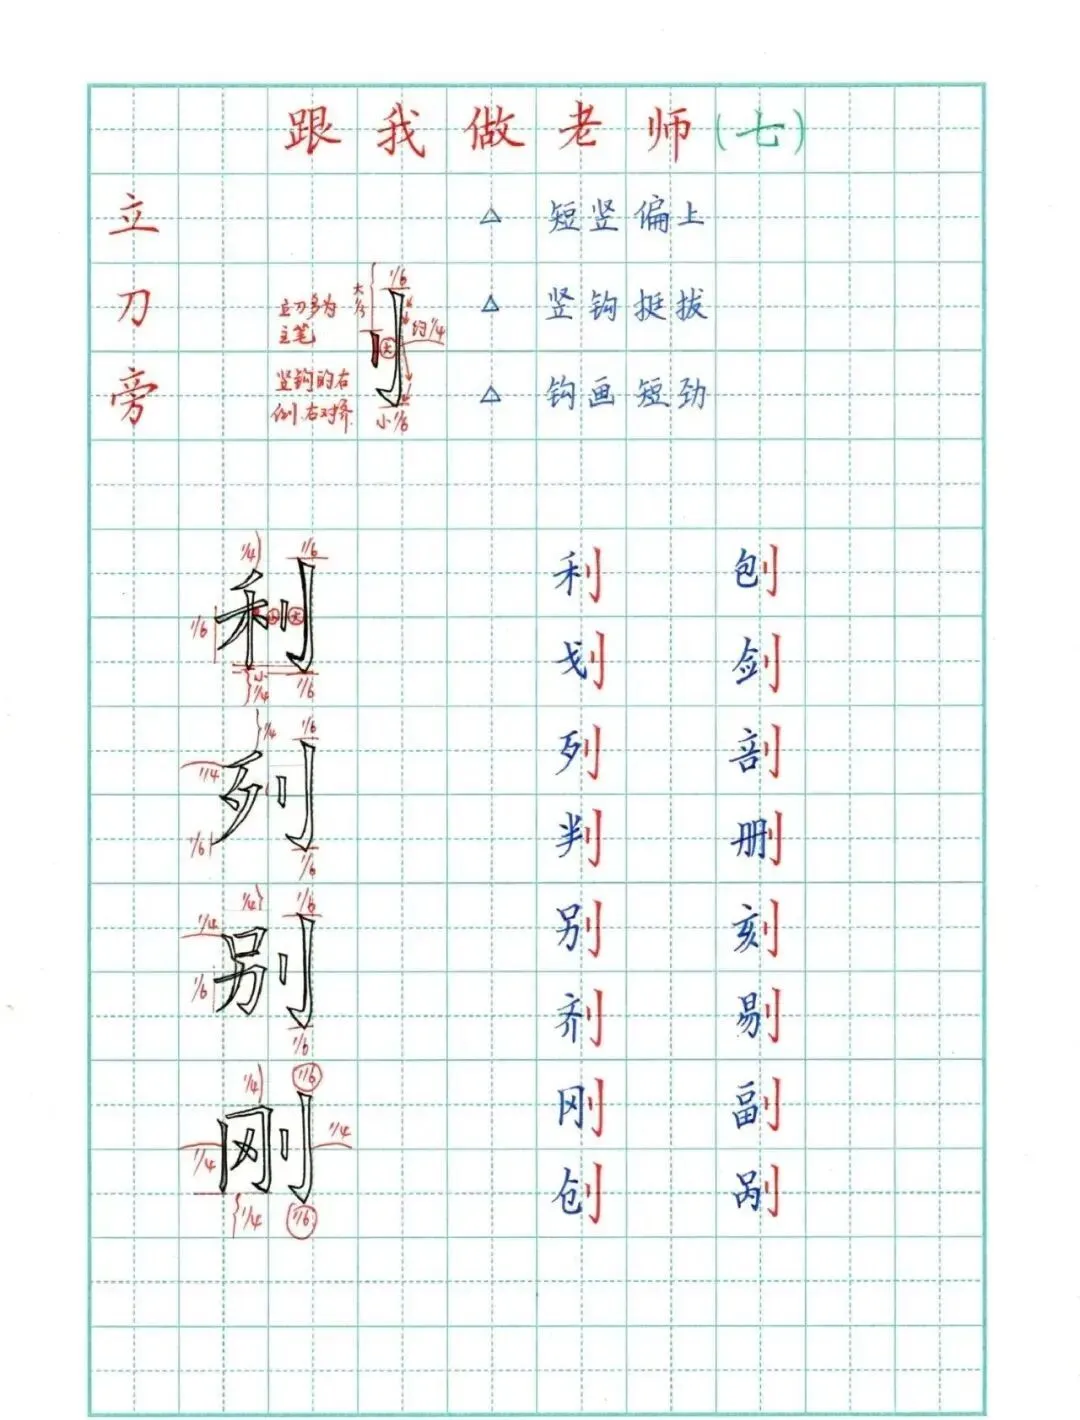 跟我做老师(七)
立刀旁
△ 短竖偏上
△ 竖钩挺拔
△ 钩画短劲
立刀多为
主笔
竖钩的右
侧、右对齐
大1/3
1/6
约1/4
大
小1/6
1/4 1/6
利
1/6
小 大
小1/4 1/6
1/4 1/6
1/4
列
1/6 1/6
1/4 1/6
1/4
别
1/6 1/6
1/4 1/6
刚
1/4 1/4
1/4 1/6
利 刨
划 剑
列 剖
判 删
别 刻
剂 剔
刚 副
创 剐